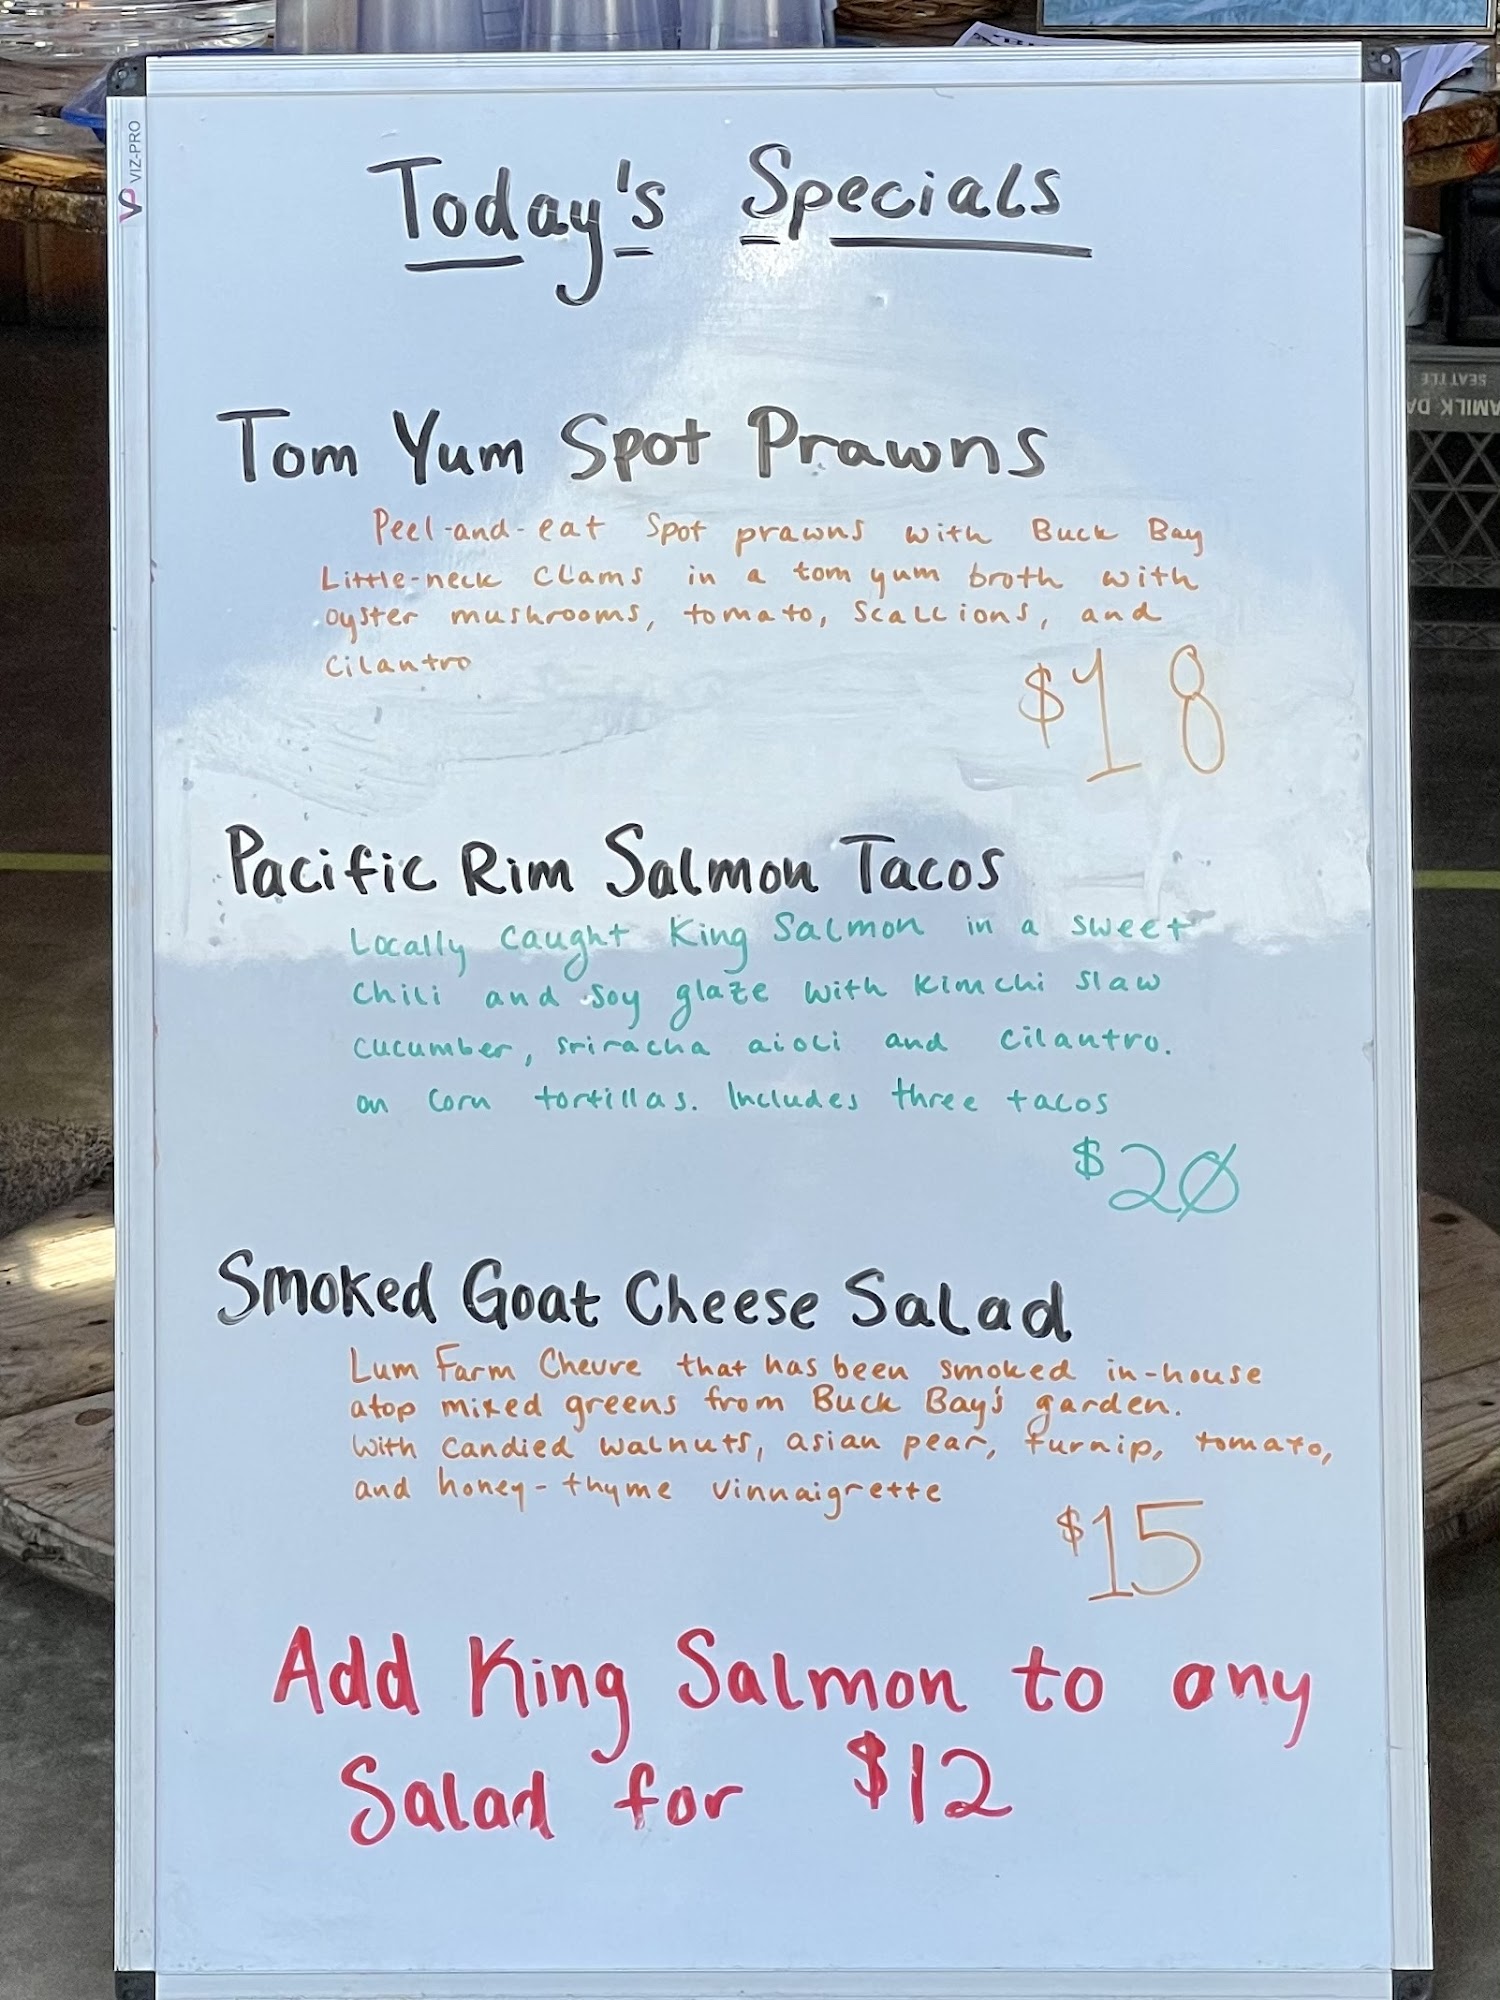 VIZ-PRO
Today's Specials
SEATTLE
Tom Yum Spot Prawns
Peel-and-eat Spot prawns with Buck Bay
Little-neck Clams in a tom yum broth with
oyster mushrooms, tomato, scallions, and
cilantro
$18
Pacific Rim Salmon Tacos
Locally caught King Salmon in a sweet
chili and soy glaze with kimchi slaw
cucumber, sriracha aioli and cilantro.
on corn tortillas. Includes three tacos
$20
Smoked Goat Cheese Salad
Lum Farm Chevre that has been smoked in-house
atop mixed greens from Buck Bay's garden.
with candied walnuts, asian pear, turnip, tomato,
and honey-thyme vinnaigrette
$15
Add King Salmon to any
Salad for $12